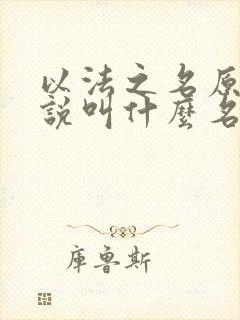 以法之名原
說叫什麼名
庫魯斯